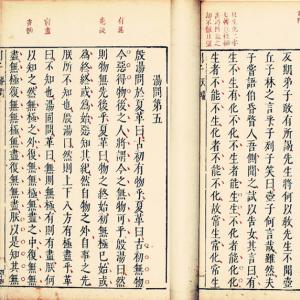 反期弟子敢有所謁先生將何以教先生不聞壺
丘子林之言乎列子笑曰壺子何言哉雖然夫
子嘗語伯昏瞀人吾側聞之試以告女其言曰有
生不生有化不化不生者能生生不化者能化化
生者不能不生化者不能不化故常生常化
湯問第五
殷湯問於夏革曰古初有物乎夏革曰古初無物
今惡得物後之人將謂今之無物可乎殷湯曰然
則物無先後乎夏革曰物之終始初無極已始或
為終終或為始惡知其紀然自物之外自事之先
朕所不知也殷湯曰然則上下八方有極盡乎革
曰不知也湯固問革曰無則無極有則有盡朕何
以知之然無極之外復無無極無盡之中復無無
盡無極復無無極無盡復無無盡朕以是知其無